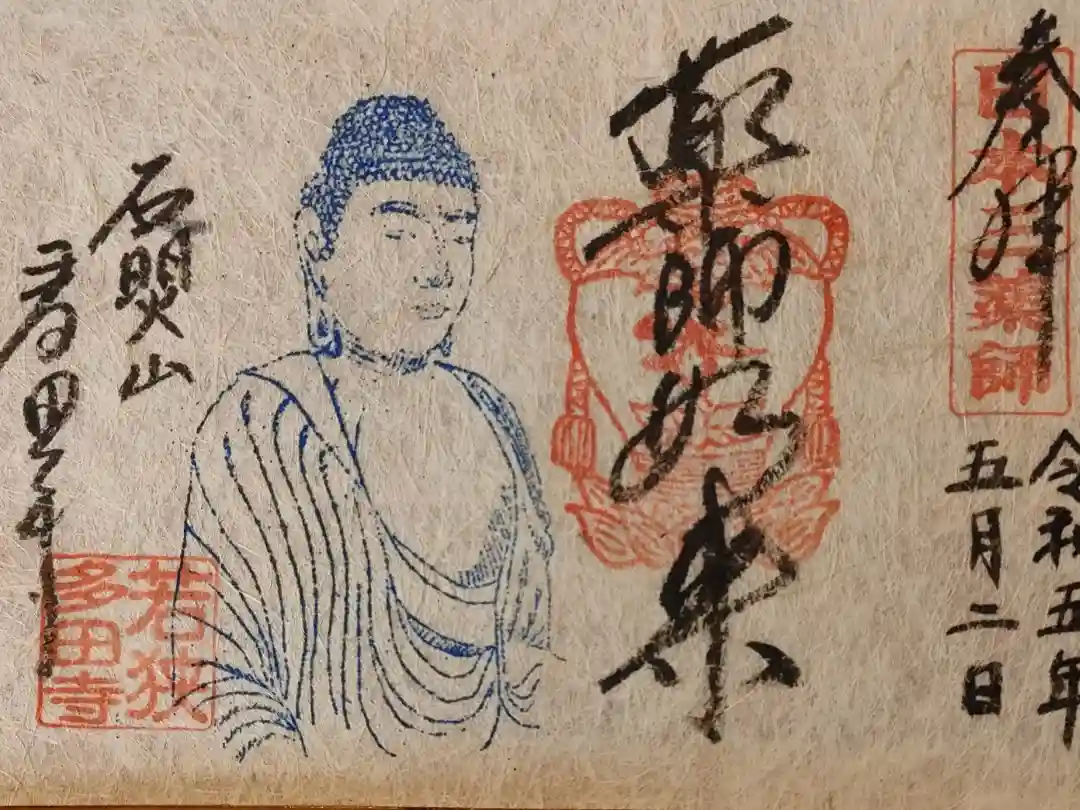 奉拝
日本三薬師
令和五年
五月二日
薬師如来
石照山
多田寺
若狹
多田寺